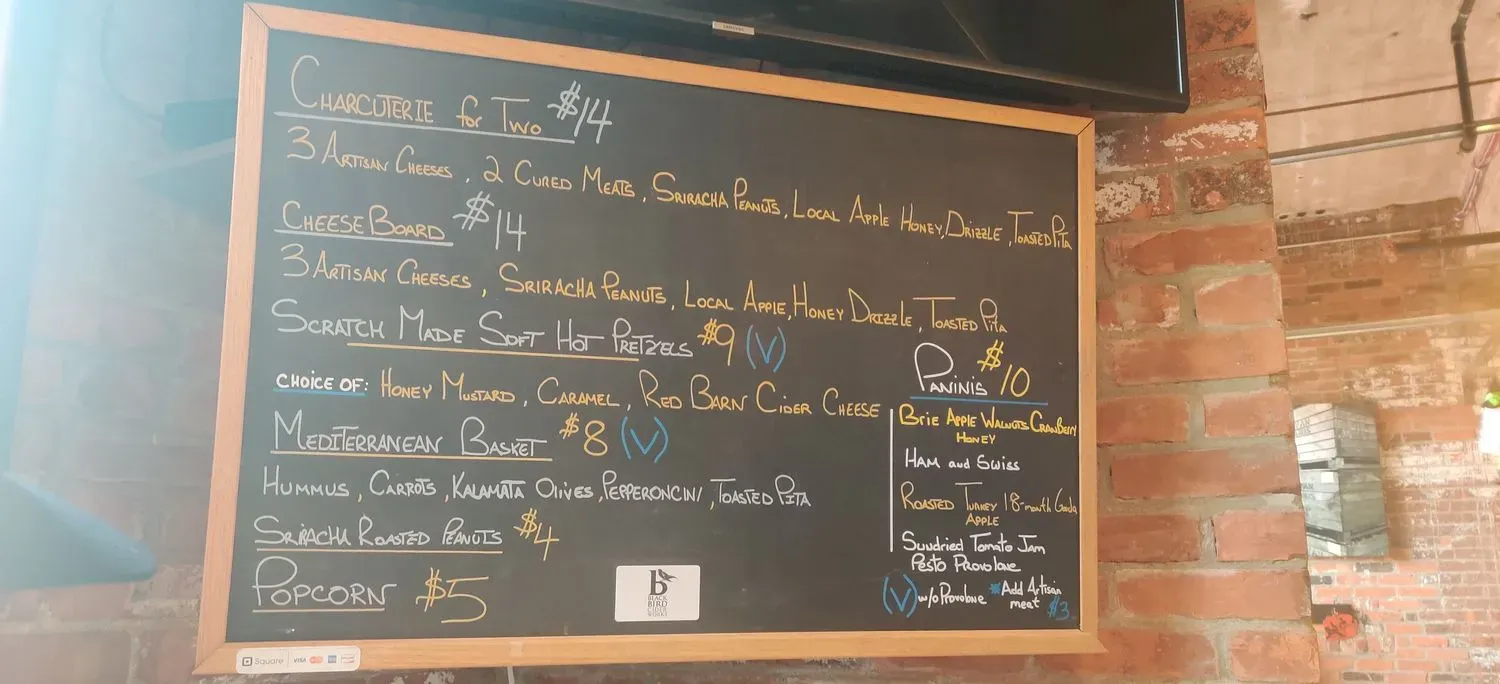 CHARCUTERIE for TWO $14
3 ARTISAN CHEESES, 2 CURED MEATS, SRIRACHA PEANUTS, LOCAL APPLE HONEY, DRIZZLE, TOASTED PITA
CHEESE BOARD $14
3 ARTISAN CHEESES, SRIRACHA PEANUTS, LOCAL APPLE, HONEY DRIZZLE, TOASTED PITA
SCRATCH MADE SOFT HOT PRETZELS $9 (V)
CHOICE OF: HONEY MUSTARD, CARAMEL, RED BARN CIDER CHEESE
MEDITERRANEAN BASKET $8 (V)
HUMMUS, CARROTS, KALAMATA OLIVES, PEPPERONCINI, TOASTED PITA
SRIRACHA ROASTED PEANUTS $4
POPCORN $5
PANINIS $10
BRIE APPLE WALNUTS CRANBERRY
HONEY
HAM and SWISS
ROASTED TURKEY 18-month Gouda
APPLE
Sundried Tomato Jam
Pesto Provolone
(V) w/o Provolone *Add Artisan
meat $3
b
BLACK
BIRD
CIDER
WORKS
Square VISA
SAMSUNG